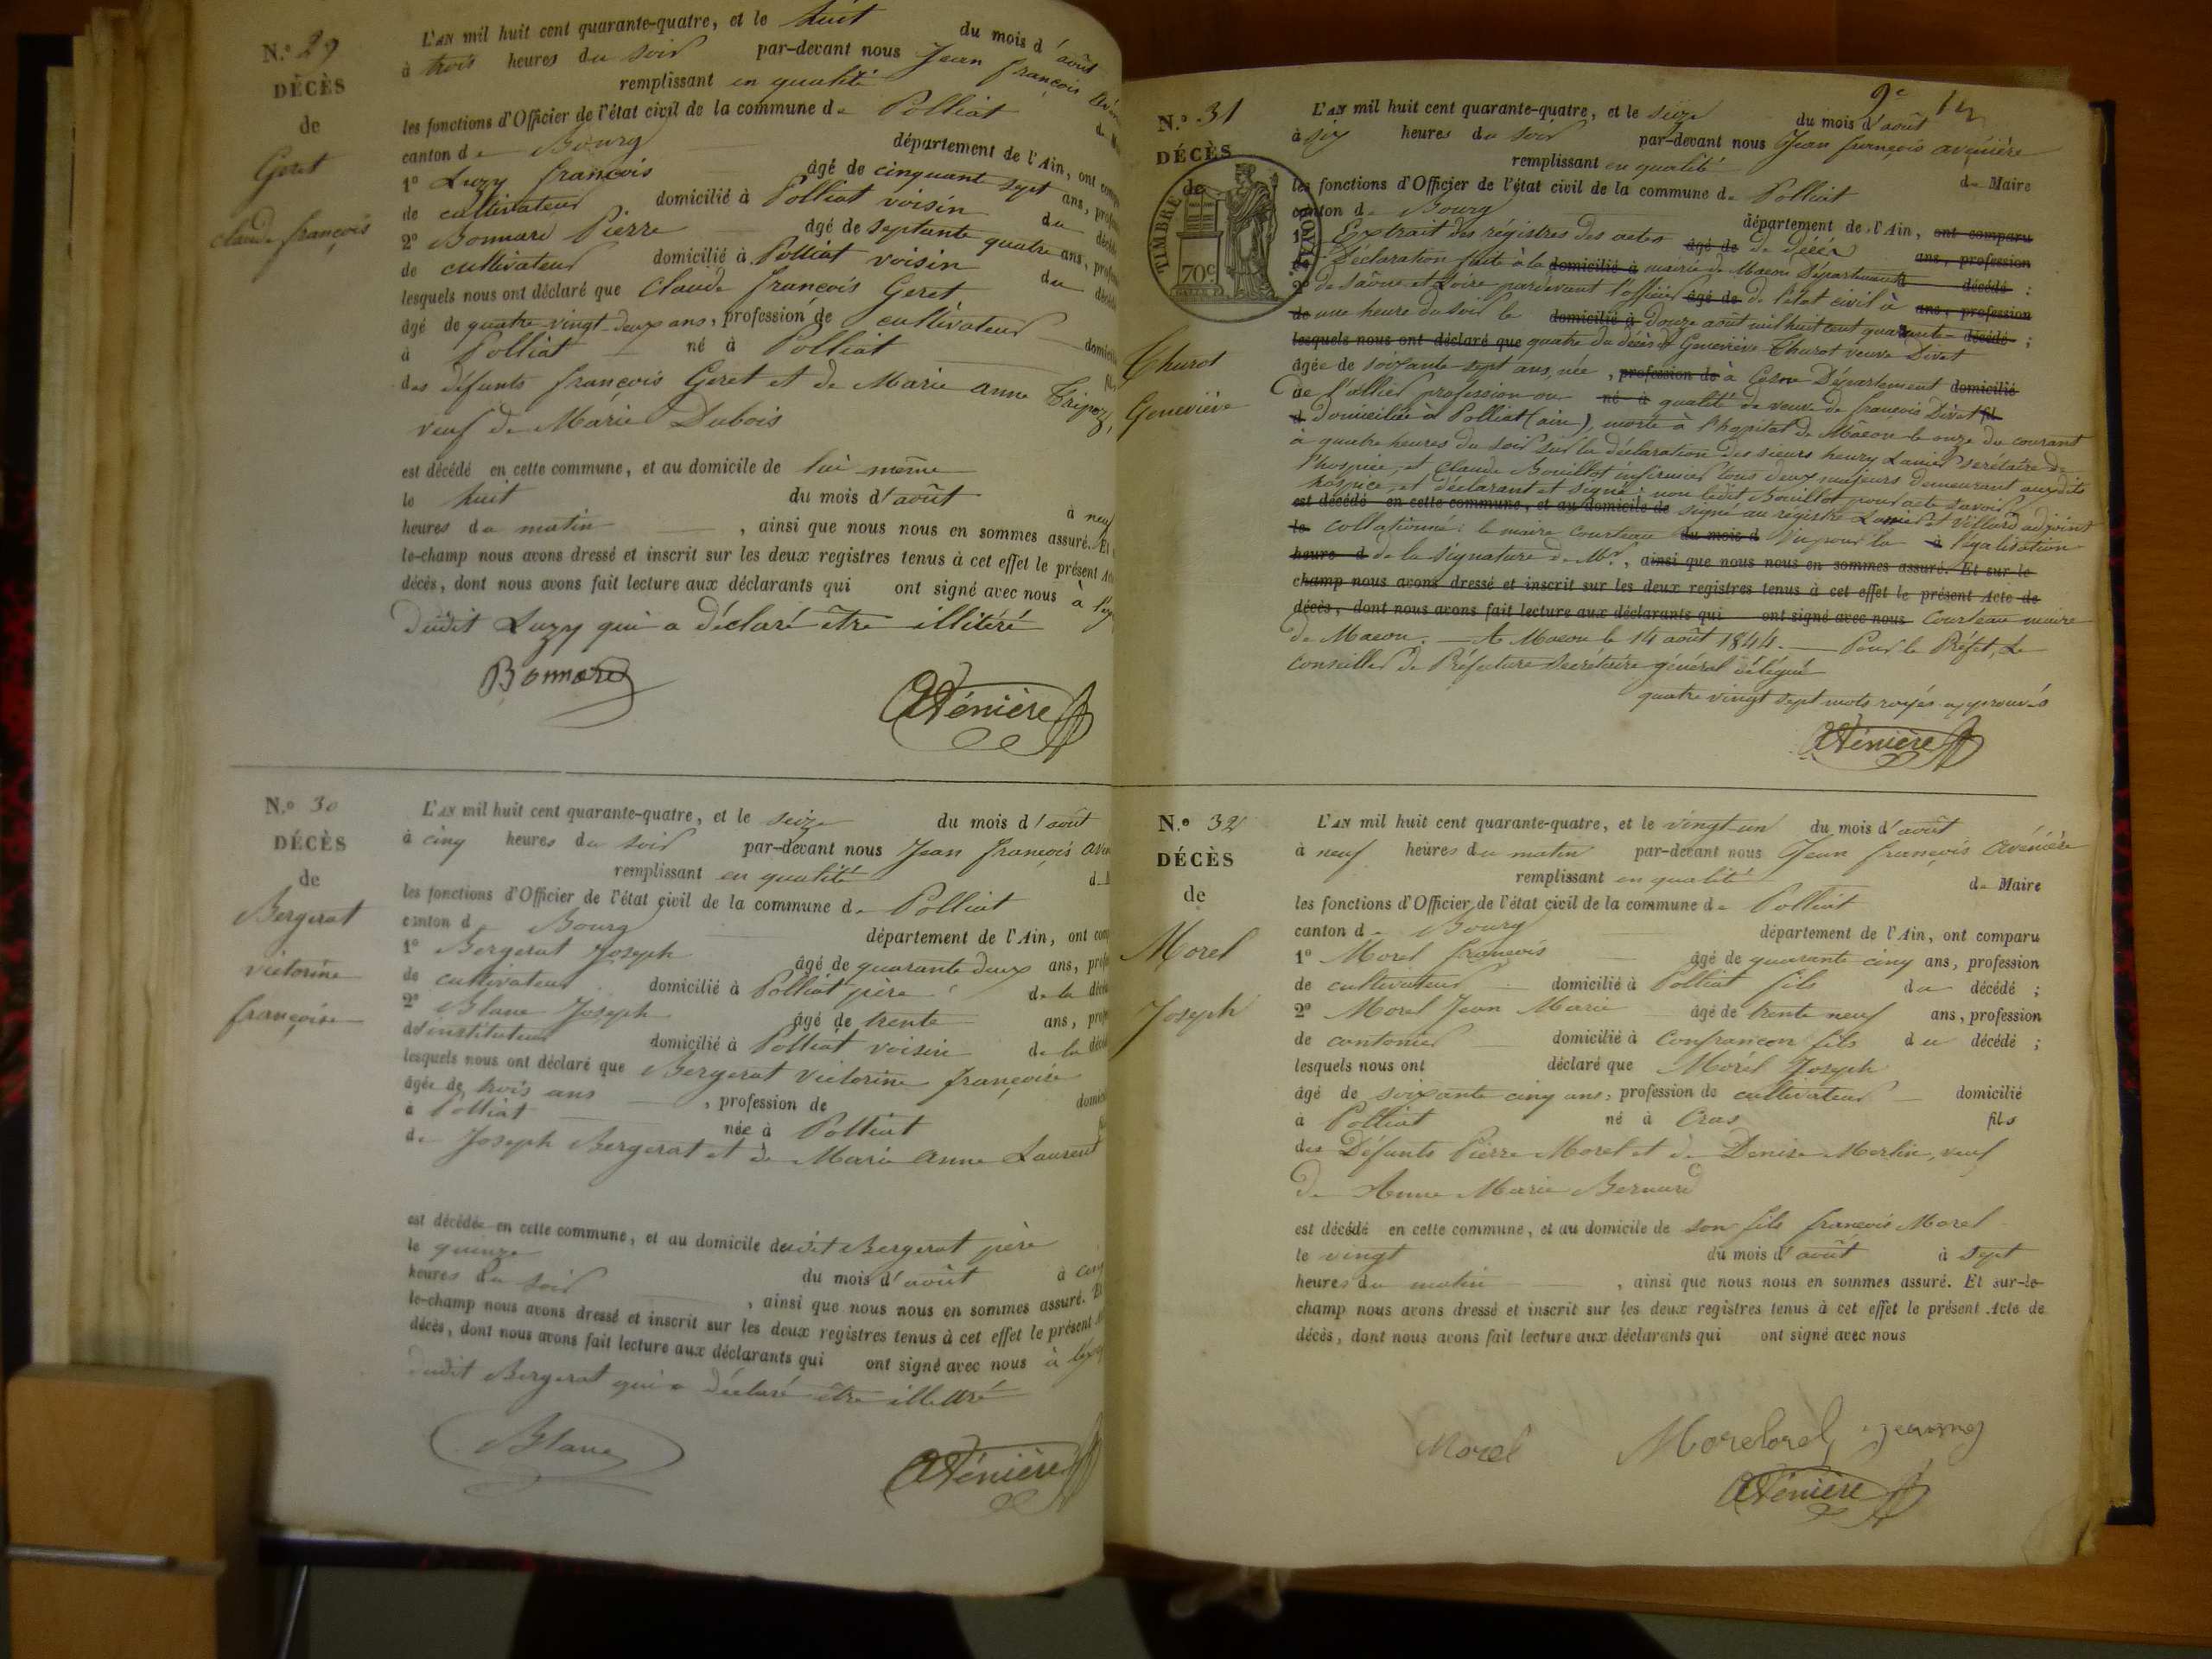 N.º 29
DÉCÈS
de
Geret
claude françois
L'AN mil huit cent quarante-quatre, et le huit du mois d'août
à trois heures du soir par-devant nous Jean françois
remplissant en qualité
les fonctions d'Officier de l'état civil de la commune de Polliat
canton de Bourg département de l'Ain, ont
1º Luzy françois âgé de cinquante sept ans,
de cultivateur domicilié à Polliat voisin du
2º Bonnard Pierre âgé de septante quatre ans,
de cultivateur domicilié à Polliat voisin du
lesquels nous ont déclaré que Claude françois Geret
âgé de quatre vingt deux ans, profession de cultivateur
à Polliat né à Polliat
des défunts françois Geret et de Marie anne Tripoz,
veuf de Marie Dubois
est décédé en cette commune, et au domicile de lui même
le huit du mois d'août à neuf
heures du matin , ainsi que nous nous en sommes assuré. Et
le-champ nous avons dressé et inscrit sur les deux registres tenus à cet effet le présent
décès, dont nous avons fait lecture aux déclarants qui ont signé avec nous à
dudit Luzy qui a déclaré être illitéré
Bonnard
AVénière
N.º 30
DÉCÈS
de
Bergerat
victorine
françoise
L'AN mil huit cent quarante-quatre, et le seize du mois d'août
à cinq heures du soir par-devant nous Jean françois
remplissant en qualité
les fonctions d'Officier de l'état civil de la commune de Polliat
canton d Bourg département de l'Ain, ont
1º Bergerat Joseph âgé de quarante deux ans,
de cultivateur domicilié à Polliat père de la
2º Blanc Joseph âgé de trente ans,
d'instituteur domicilié à Polliat voisin de la
lesquels nous ont déclaré que Bergerat victorine françoise
âgée de trois ans , profession de
à Polliat née à Polliat
de Joseph Bergerat et de Marie anne Laurent
est décédée en cette commune, et au domicile dudit Bergerat père
le quinze du mois d'août à cinq
heures du soir , ainsi que nous nous en sommes assuré. Et
le-champ nous avons dressé et inscrit sur les deux registres tenus à cet effet le présent
décès, dont nous avons fait lecture aux déclarants qui ont signé avec nous à
dudit Bergerat qui a déclaré être illettré
Blanc
AVénière
9e
N.º 31
DÉCÈS
de
TIMBRE ROYAL
70c
Thurot
Geneviève
L'AN mil huit cent quarante-quatre, et le seize du mois d'août
à six heures du soir par-devant nous Jean françois avénière
remplissant en qualité de Maire
les fonctions d'Officier de l'état civil de la commune de Polliat
canton de Bourg département de l'Ain, ont comparu
1º Extrait des régistres des actes âgé de de décès ans, profession
de Déclaration faite à la domicilié à mairie de Macon Département décédé ;
2º de Saône et Loire pardevant l'officier âgé de de l'état civil à ans, profession
de une heure du soir le domicilié à douze août mil huit cent quarante- décédé ;
lesquels nous ont déclaré que quatre du décès de Geneviève Thurot veuve Divet
âgée de soixante sept ans, née , profession de à Département domicilié
de l'allier profession ou né à qualité de veuve de françois Divet fil
d domiciliée à Polliat (ain), morte à l'hopital de Mâcon le onze du courant
à quatre heures du soir sur la déclaration des sieurs henry Lanier serétaire de
l'hospice, et Claude Bouillot infirmier tous deux majeurs demeurant audit
hospice, et déclarant et signé, non ledit Bouillot pour ne le savoir
est décédé en cette commune, et au domicile de signé au régistre Lanier et Villard adjoint
le collationné : le maire Courteau du mois d Vu pour la à légalisation
heure d de la signature de Mr. , ainsi que nous nous en sommes assuré. Et sur-le-
champ nous avons dressé et inscrit sur les deux registres tenus à cet effet le présent Acte de
décès, dont nous avons fait lecture aux déclarants qui ont signé avec nous Courteau maire
de Macon. — A Macon le 14 août 1844. — Pour le Préfet, Le
conseiller de Préfecture secrétaire général délégué
quatre vingt sept mots rayés approuvés
AVénière
N.º 32
DÉCÈS
de
Morel
Joseph
L'AN mil huit cent quarante-quatre, et le vingt-un du mois d'août
à neuf heures du matin par-devant nous Jean françois avénière
remplissant en qualité de Maire
les fonctions d'Officier de l'état civil de la commune de Polliat
canton de Bourg département de l'Ain, ont comparu
1º Morel françois âgé de quarante cinq ans, profession
de cultivateur domicilié à Polliat fils du décédé ;
2º Morel Jean Marie âgé de trente neuf ans, profession
de cantonier domicilié à Confrancon fils du décédé ;
lesquels nous ont déclaré que Morel Joseph
âgé de soixante cinq ans, profession de cultivateur domicilié
à Polliat né à Cras fils
des Défunts Pierre Morel et de Denise Merlin, veuf
de Anne Marie Bernard
est décédé en cette commune, et au domicile de son fils françois Morel
le vingt du mois d'août à sept
heures du matin , ainsi que nous nous en sommes assuré. Et sur-le-
champ nous avons dressé et inscrit sur les deux registres tenus à cet effet le présent Acte de
décès, dont nous avons fait lecture aux déclarants qui ont signé avec nous
Morel
AVénière